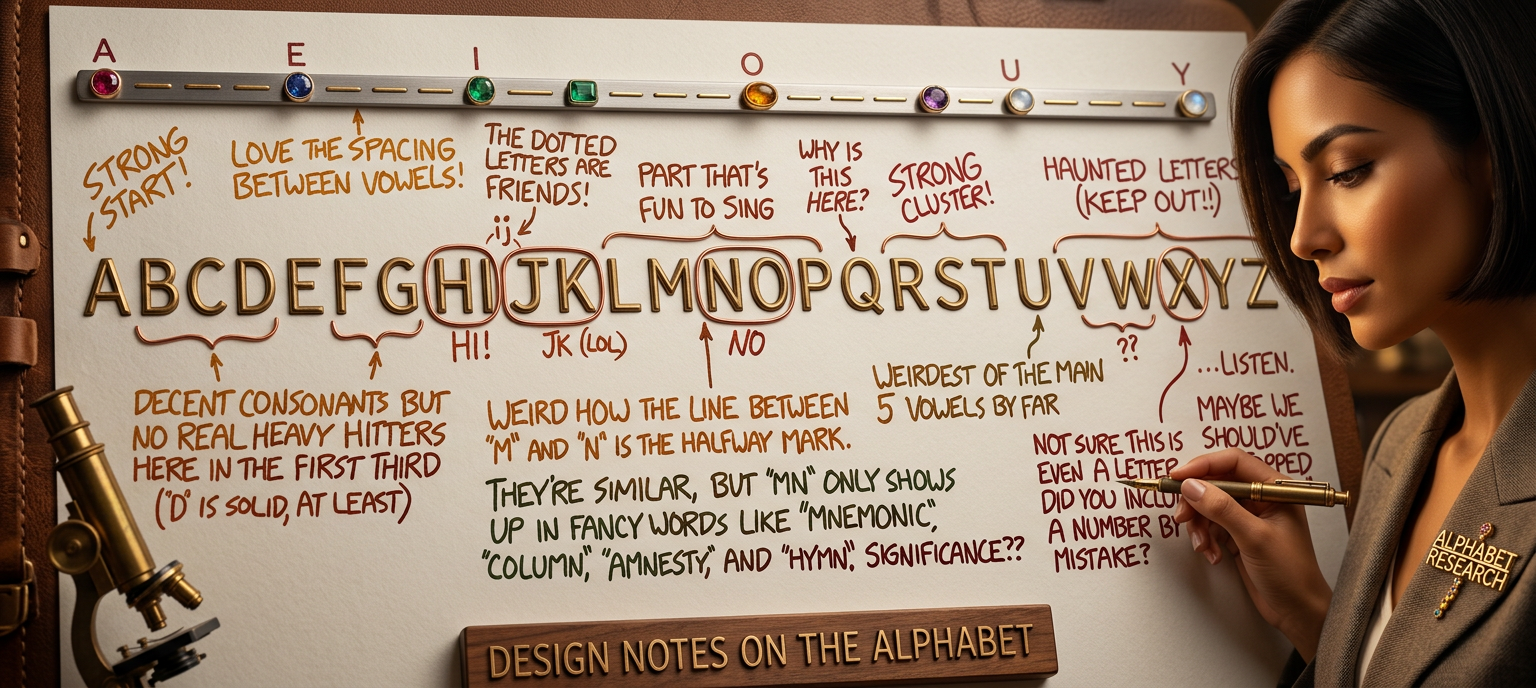 A E I O U Y
STRONG
START!
LOVE THE SPACING
BETWEEN VOWELS!
THE DOTTED
LETTERS ARE
FRIENDS!
ij
PART THAT'S
FUN TO SING
WHY IS
THIS
HERE?
STRONG
CLUSTER!
HAUNTED LETTERS
(KEEP OUT!!)
ABCDEFGHIJKLMNOPQRSTUVWXYZ
HI!
JK (LOL)
NO
??
DECENT CONSONANTS BUT
NO REAL HEAVY HITTERS
HERE IN THE FIRST THIRD
("D" IS SOLID, AT LEAST)
WEIRD HOW THE LINE BETWEEN
"M" AND "N" IS THE HALFWAY MARK.
THEY'RE SIMILAR, BUT "MN" ONLY SHOWS
UP IN FANCY WORDS LIKE "MNEMONIC",
"COLUMN", "AMNESTY", AND "HYMN", SIGNIFICANCE??
WEIRDEST OF THE MAIN
5 VOWELS BY FAR
NOT SURE THIS IS
EVEN A LETTER
DID YOU
A NUMBER BY
MISTAKE?
...LISTEN.
MAYBE WE
SHOULD'VE
ALPHABET
RESEARCH
DESIGN NOTES ON THE ALPHABET